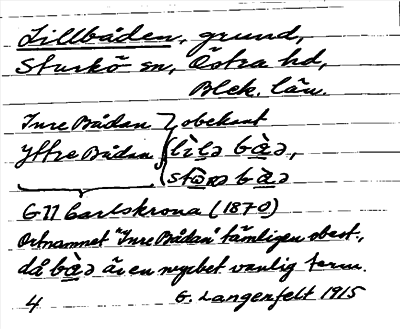 Lillbåden, grund,
Sturkö sn, Östra hd,
Blek. län.
Inre Bådan } obekant
Yttre Bådan { lìlə bàə,
bàə
GII Carlskrona (1870)
Ortnamnet "Inre Bådan" tämligen obest.,
då bàə är en mycket vanlig term.
4 G. Langenfelt 1915